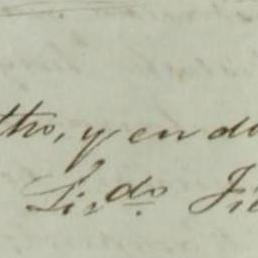 tho, y en d
Lis.do Ji